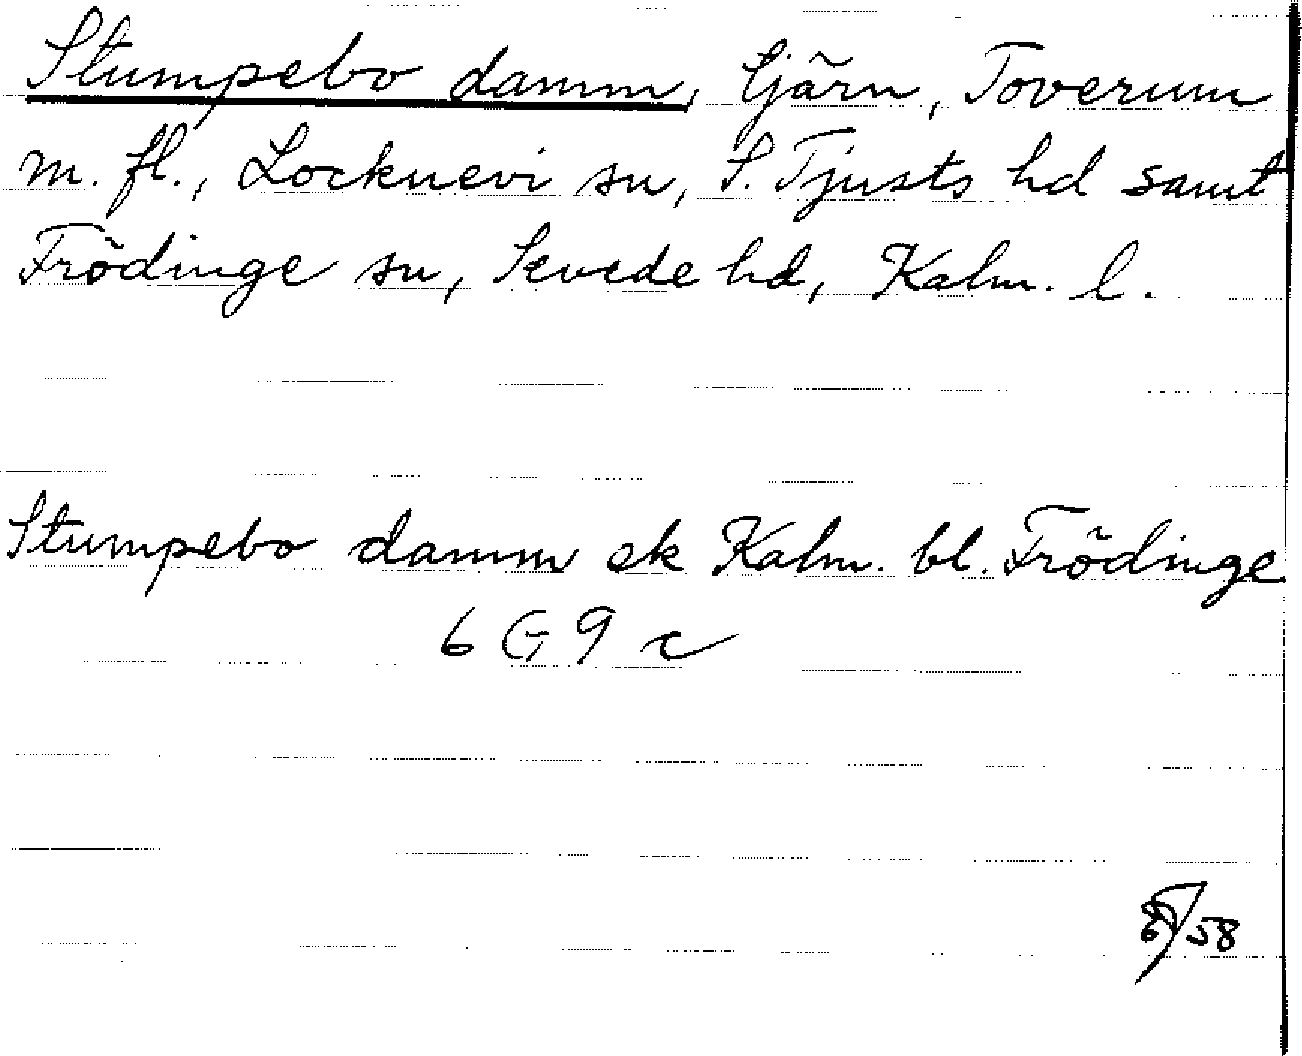 Stumpebo damm, tjärn, Toverum
m. fl., Locknevi sn, S. Tjusts hd samt
Frödinge sn, Sevede hd, Kalm. l.
Stumpebo damm ek Kalm. bl. Frödinge
6 G 9 c
/58